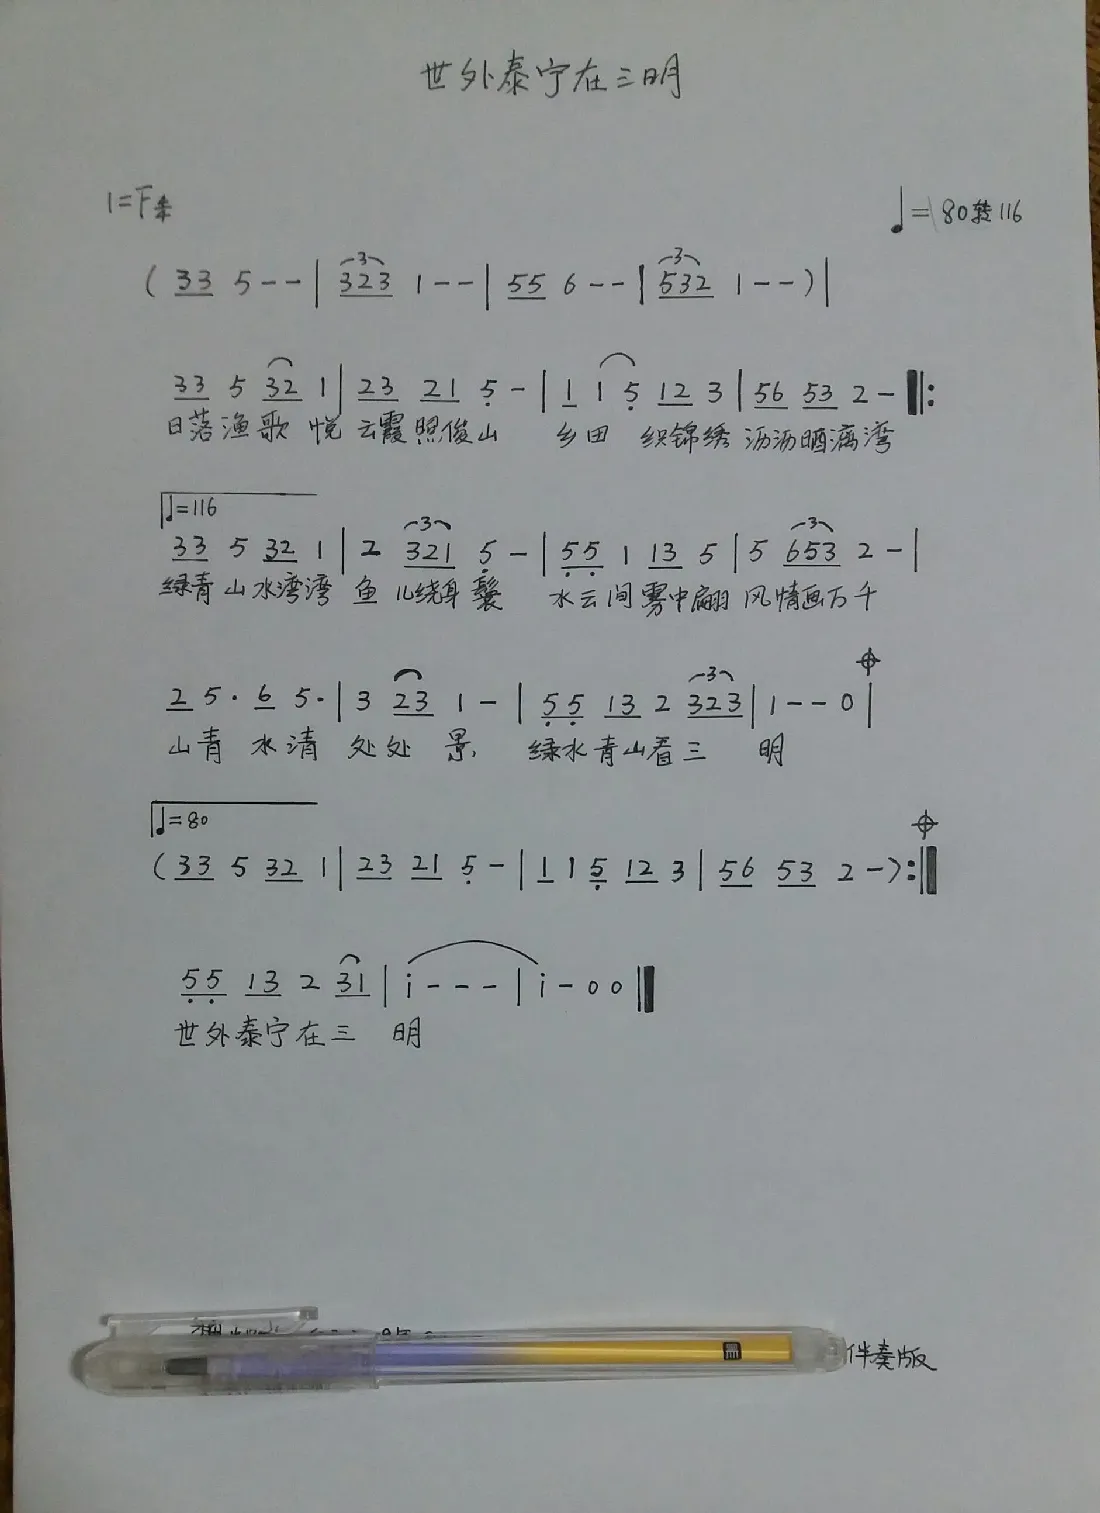 世外泰宁在三明
1=F 4/4 ♩=80转116
( 33 5 - - | 3 323 1 - - | 55 6 - - | 3 532 1 - - ) |
33 5 32 1 | 23 21 5 - | 1 1 5 12 3 | 56 53 2 - ‖:
日落渔歌 悦 云霞照俊山 乡田 织锦绣 沥沥晒漓湾
♩=116
33 5 32 1 | 2 3 321 5 - | 55 1 13 5 | 5 3 653 2 - |
绿青山水湾湾 鱼儿绕耳鬟 水云间雾中翩 风情画万千
2 5 · 6 5 · | 3 23 1 - | 55 13 2 3 323 | 1 - - 0 |
山青 水清 处处 景 绿水青山看三 明
♩=80
( 33 5 32 1 | 23 21 5 - | 1 1 5 12 3 | 56 53 2 - ) :‖
55 13 2 31 | i - - - | i - 0 0 ‖
世外泰宁在三 明
伴奏版